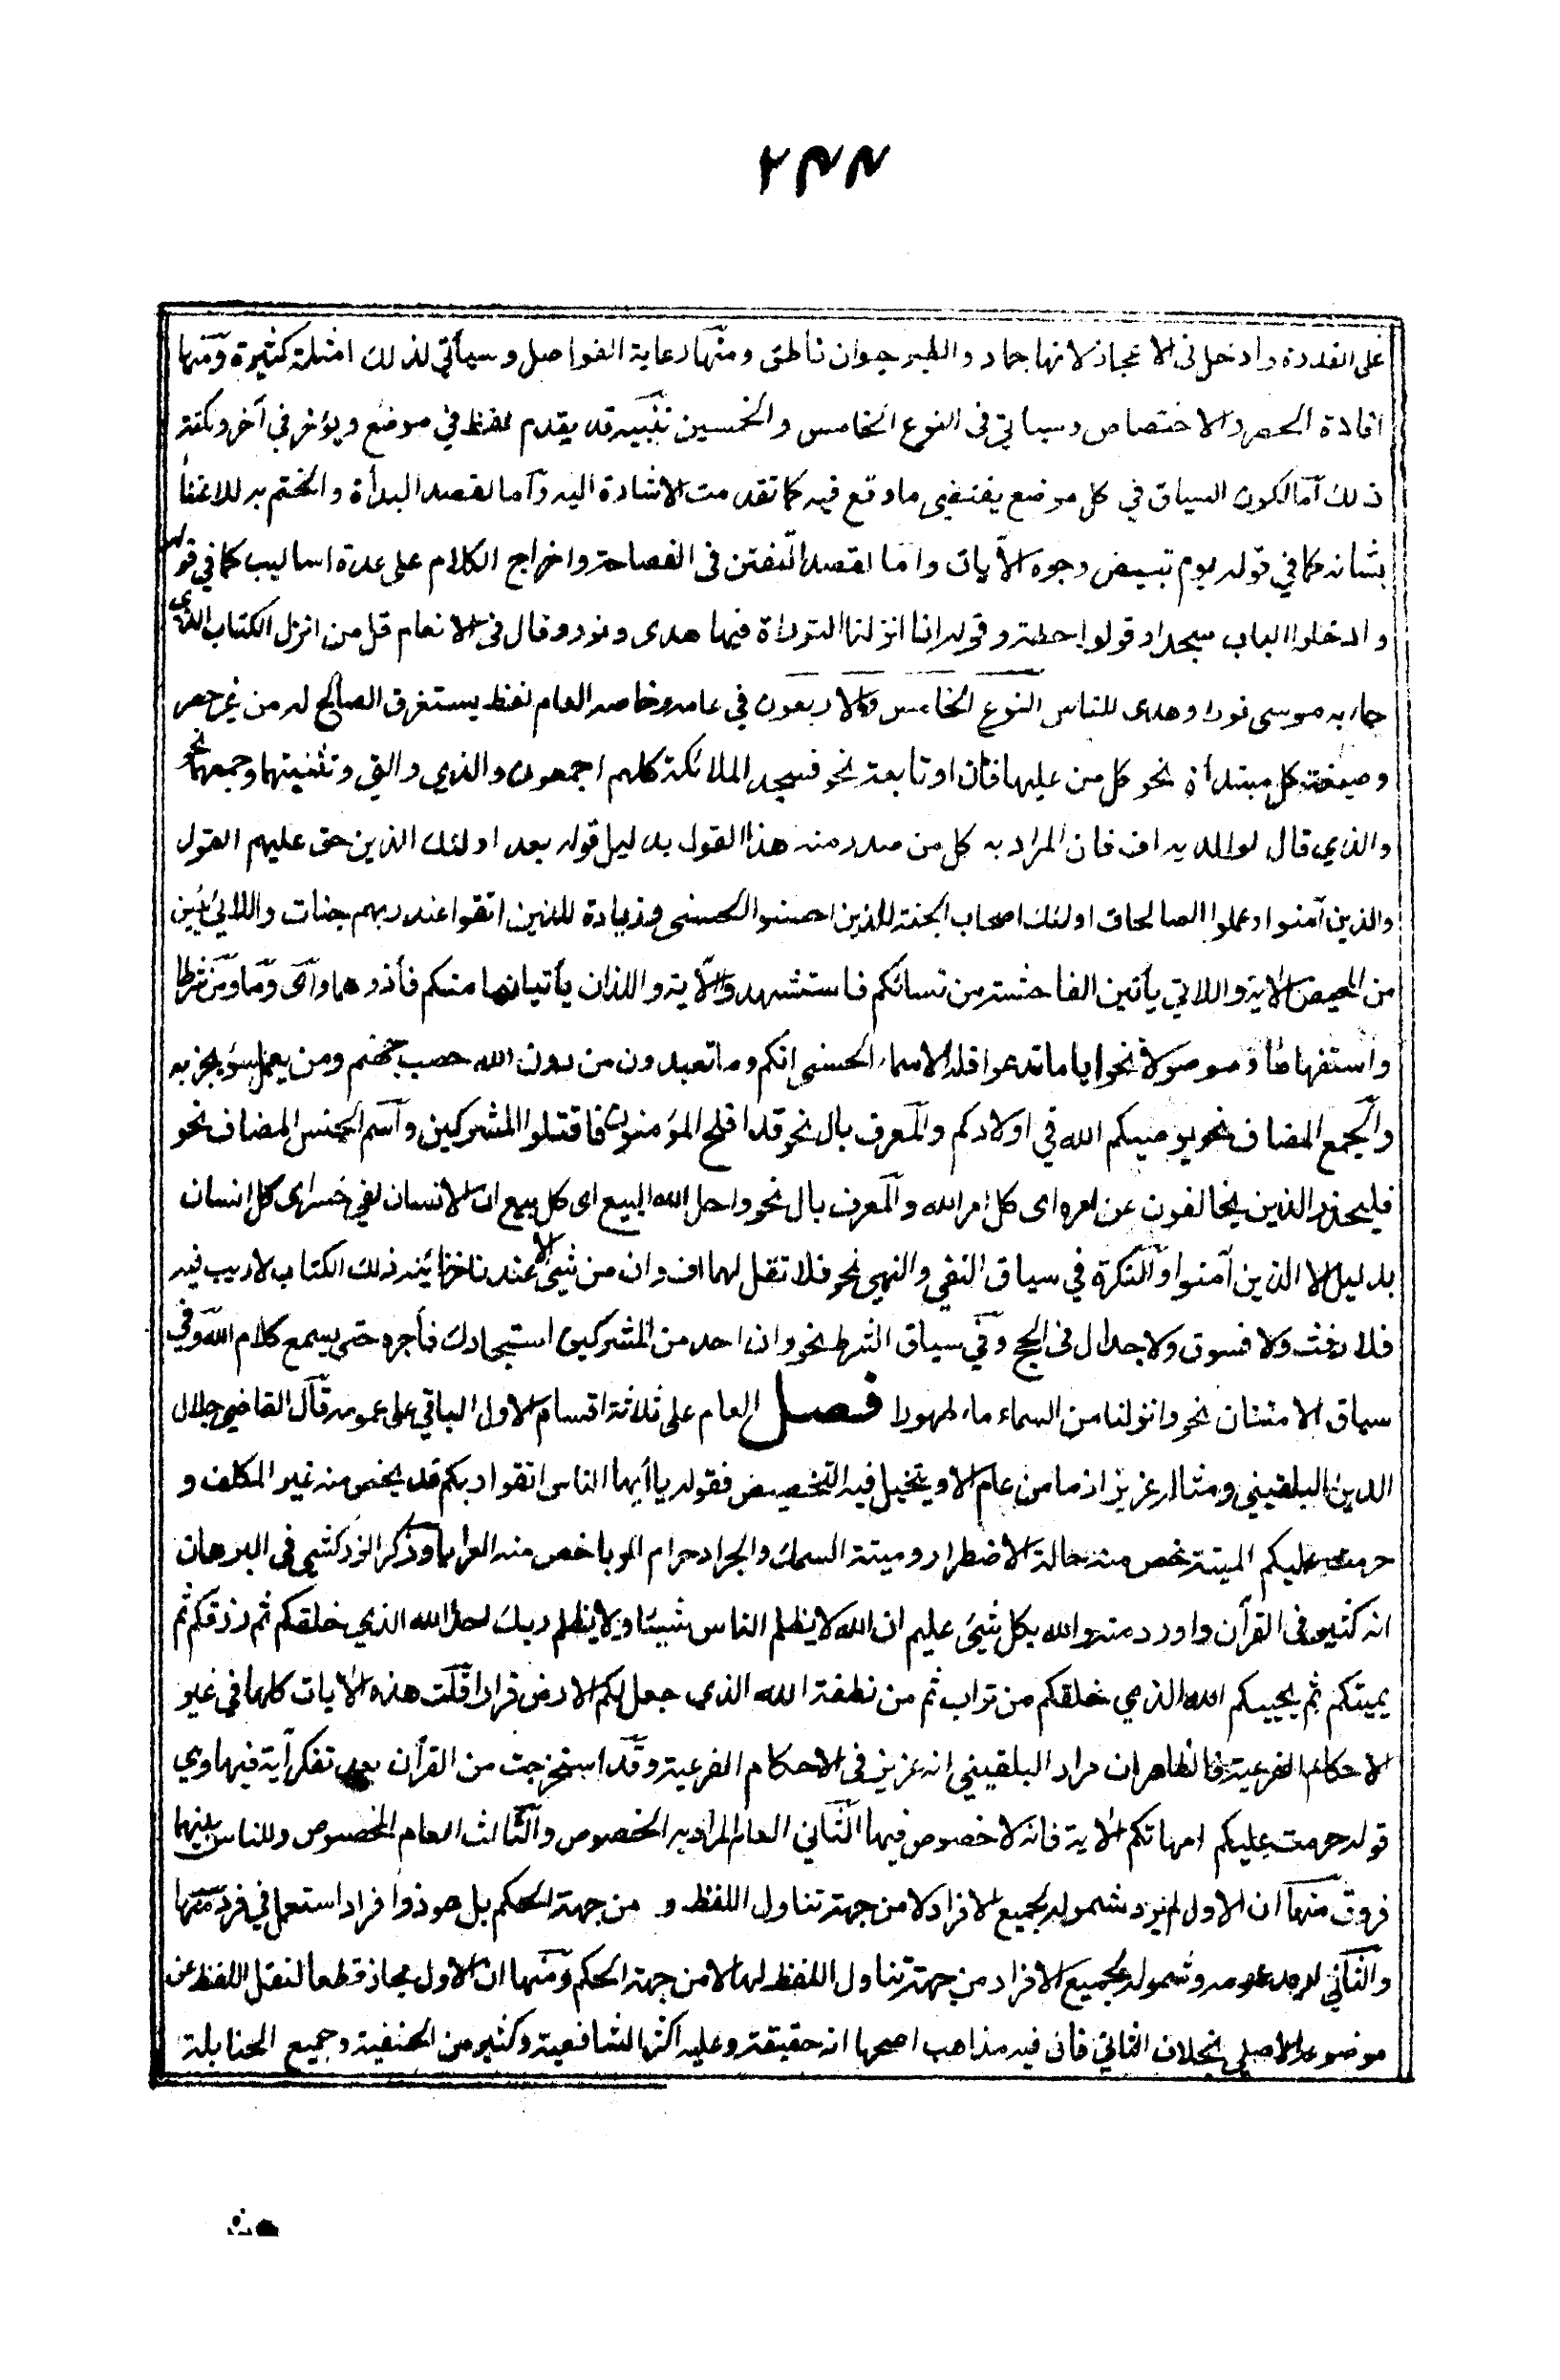 ٢٣٣
على القدرة وادخل فى الاعجاز لانها جماد والطير حيوان ناطق ومنها رعاية الفواصل وسيأتي لذلك امثلة كثيرة ومنها
افادة الحصر والاختصاص وسيأتي فى النوع الخامس والخمسين تنبيه قد يقدم لفظ في موضع ويؤخر في آخر ونكتة
ذلك اما لكون السياق في كل موضع يقتضي ما وقع فيه كما تقدمت الاشارة اليه واما لقصد البدأة والختم به للاعتنا
بشانه كما في قوله يوم تبيض وجوه الآيات واما لقصد التفنن فى الفصاحة واخراج الكلام على عدة اساليب كما في قوله
وادخلوا الباب سجدا وقولوا حطة وقوله انا انزلنا التوراة فيها هدى ونور وقال فى الانعام قل من انزل الكتاب الذي
جاء به موسى نورا وهدى للناس النوع الخامس والاربعون في عامه وخاصه العام لفظ يستغرق الصالح له من غير حصر
وصيغته كل مبتدأة نحو كل من عليها فان او تابعة نحو فسجد الملائكة كلهم اجمعون والذي والتي وتثنيتهما وجمعهما نحو
والذي قال لوالديه اف فان المراد به كل من صدر منه هذا القول بدليل قوله بعد اولئك الذين حق عليهم القول
والذين آمنوا وعملوا الصالحات اولئك اصحاب الجنة للذين احسنوا الحسنى وزيادة للذين اتقوا عند ربهم جنات واللائي يئسن
من المحيض الاية واللاتي يأتين الفاحشة من نسائكم فاستشهدوا الآية واللذان يأتيانها منكم فأذوهما واى وما ومن شرطا
واستفهاما وموصولا نحو اياما تدعوا فله الاسماء الحسنى انكم وما تعبدون من دون الله حصب جهنم ومن يعمل سؤ يجز به
والجمع المضاف نحو يوصيكم الله في اولادكم والمعرف بال نحو قد افلح المؤمنون فاقتلوا المشركين واسم الجنس المضاف نحو
فليحذر الذين يخالفون عن امره اى كل امر الله والمعرف بال نحو واحل الله البيع اى كل بيع ان الانسان لفي خسر اى كل انسان
بدليل الا الذين آمنوا والنكرة في سياق النفي والنهي نحو فلا تقل لهما اف وان من شئ الا عندنا خزائنه ذلك الكتاب لا ريب فيه
فلا رفث ولا فسوق ولا جدال فى الحج وفي سياق الشرط نحو وان احد من المشركين استجارك فأجره حتى يسمع كلام الله وفي
سياق الامتنان نحو وانزلنا من السماء ماء طهورا فصل العام على ثلاثة اقسام الاول الباقي على عمومه قال القاضي جلال
الدين البلقيني ومثاله عزيز اذ ما من عام الا ويتخيل فيه التخصيص فقوله يا ايها الناس اتقوا ربكم قد يخص منه غير المكلف و
حرمت عليكم الميتة خص منه حالة الاضطرار وميتة السمك والجراد وحرم الربا خص منه العرايا وذكر الزركشي فى البرهان
انه كثير فى القرآن واورد منه والله بكل شئ عليم ان الله لا يظلم الناس شيئا ولا يظلم ربك احدا الله الذي خلقكم ثم رزقكم ثم
يميتكم ثم يحييكم الله الذي خلقكم من تراب ثم من نطفة الله الذي جعل لكم الارض قرارا قلت هذه الآيات كلها في غير
الاحكام الفرعية فالظاهر ان مراد البلقيني انه عزيز فى الاحكام الفرعية وقد استخرجت من القرآن بعد تفكر آية فيها وهي
قوله حرمت عليكم امهاتكم الاية فانه لا خصوص فيها الثاني العام المراد به الخصوص والثالث العام المخصوص وللناس بينهما
فروق منها ان الاول لم يرد شموله لجميع الافراد لا من جهة تناول اللفظ و من جهة الحكم بل هو ذوا فراد استعمل في فرد منها
والثاني اريد عمومه وشموله لجميع الافراد من جهة تناول اللفظ لها لا من جهة الحكم ومنها ان الاول مجاز قطعا لنقل اللفظ عن
موضوعه الاصلي بخلاف الثاني فان فيه مذاهب اصحها انه حقيقة وعليه اكثر الشافعية وكثير من الحنفية وجميع الحنابلة